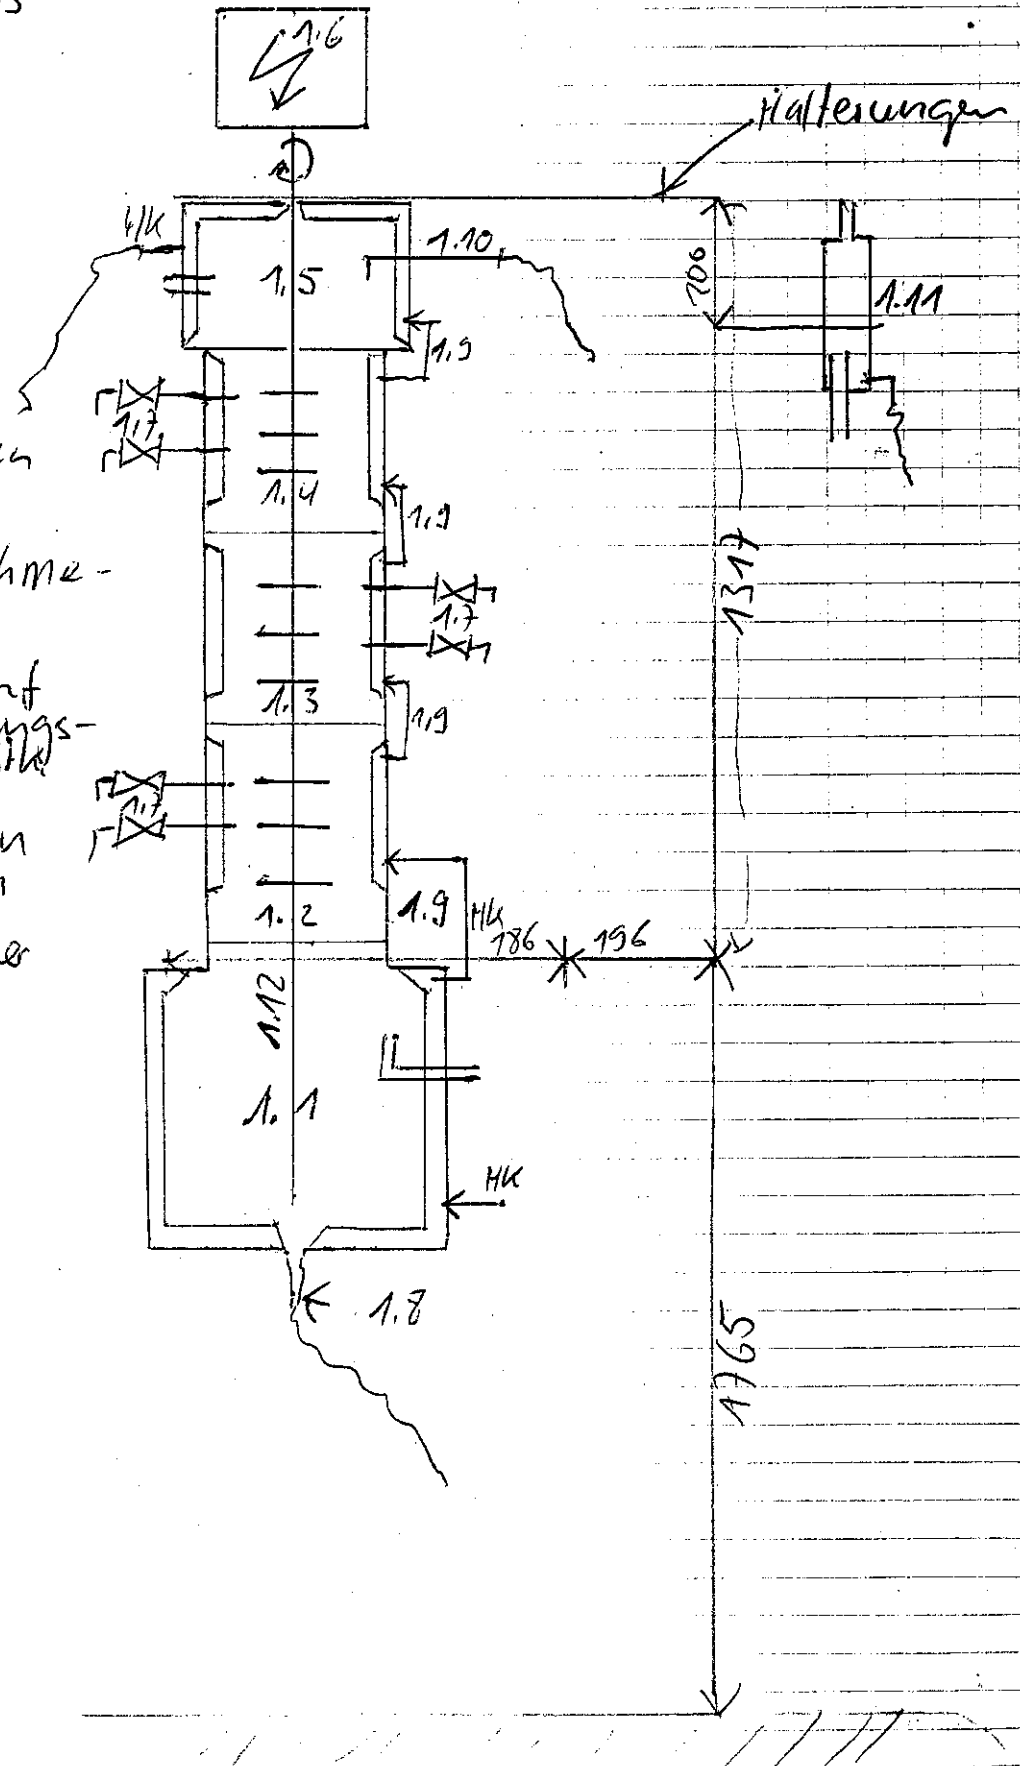 1.6
Halterungen
H/K
1.10
1.5
106
1.11
1.9
1.7
1.4
1.9
hme-
1317
1.7
1.3
ngs-
1.9
1.7
1.2
1.9
HK
186
196
er
1.12
1.1
HK
1.8
1765